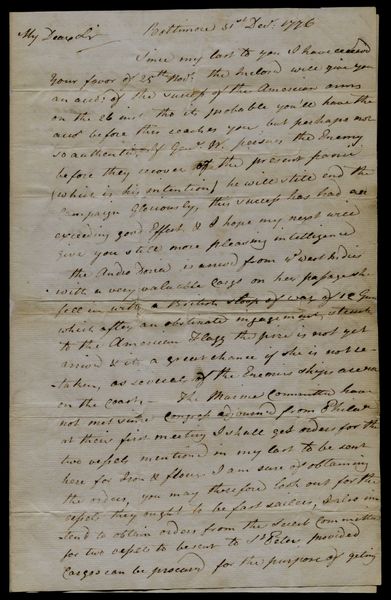 My Dear Sir Baltimore 31st Decr. 1776
Since my last to you I have received
your favor of 25th Novr. the inclosed will give you
an acct. of the success of the American arms
on the 26 inst. tho its probable you'll have the
acct before this reaches you, but perhaps not
so authentic. If Genl. W. persues the Enemy
before they recover the present panic
(which is his intention) he will still end the
Campaign Gloriously, this success has had an
exceeding good Effect & I hope my next will
give you still more pleasing intelligence
The Andw Doria is arrived from ye West Indies
with a very valuable Cargo on her passage she
fell in with a British sloop of war of 12 Guns
which after an obstinate engagement, struck
to the American Flagg the prize is not yet
arrived & its a great chance if she is not re-
taken, as several of the Enemies ships are now
on the coast,— The Marine Committee have
not met since Congress adjourned from Philada.
at their first meeting I shall get orders for the
two vessels mentioned in my last to be sent
here for Iron & flour. I am sure of obtaining
the orders, you may therefore look out for the
vessels they ought to be fast sailers, I also in-
tend to obtain orders from the Secret Committee
for two vessels to be sent to St. provided
Cargoes can be procured for the purpose of